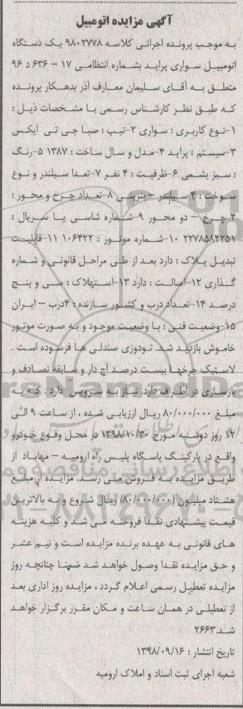 آگهی مزایده اتومبیل
به موجب پرونده اجرائی کلاسه ۹۸۰۲۷۷۸ یک دستگاه
اتومبیل سواری پراید بشماره انتظامی ۱۷ – ۶۳۶ د ۹۶
متعلق به آقای سلیمان معارف آذر بدهکار پرونده
که طبق نظر کارشناس رسمی با مشخصات ذیل :
۱-نوع کاربری : سواری ۲-تیپ : صبا جی تی ایکس
۳-سیستم : پراید ۴-مدل و سال ساخت : ۱۳۸۷ ۵-رنگ
: سبز یشمی ۶-ظرفیت : ۴ نفر ۷-تعدا سیلندر و نوع
سوخت : ۴ سیلندر - بنزینی ۸-تعداد چرخ و محور :
۴ چرخ – دو محور ۹-شماره شاسی یا سریال :
۱۰-شماره موتور : ۱۰۶۴۲۲ ۱۱-قابلیت
تبدیل پلاک : دارد بعد از طی مراحل قانونی و شماره
گذاری ۱۲-اصالت : دارد ۱۳-استهلاک : سی و پنج
درصد ۱۴-تعداد درب و کشور سازنده : ۴درب – ایران
۱۵-وضعیت فنی : با وضعیت موجود و به صورت موتور
خاموش بازدید شد. تودوزی صندلی ها فرسوده است .
لاستیک چرخها بیست درصد آج دار و سابقه تصادف و
بازسازی در اطراف دارد. نیاز به سرویس دارد. که به
مبلغ ۸۰/۰۰۰/۰۰۰ ریال ارزیابی شده ، از ساعت ۹ الی
۱۲ روز دوشنبه مورخ ۱۳۹۸/۱۰/۳۰ در محل وقوع خودرو
واقع در پارکینگ پاسگاه پلیس راه ارومیه – مهاباد از
طریق مزایده به فروش می رسد. مزایده از مبلغ
هشتاد میلیون (۸۰/۰۰۰/۰۰۰) ریال شروع و به بالاترین
قیمت پیشنهادی نقدا فروخته می شد و کلیه هزینه
های قانونی به عهده برنده مزایده است و نیم عشر
و حق مزایده نقدا وصول خواهد شد ضمنا چنانچه روز
مزایده تعطیل رسمی اعلام گردد ، مزایده روز اداری بعد
از تعطیلی در همان ساعت و مکان مقرر برگزار خواهد
شد.۲۶۶۳
تاریخ انتشار : ۱۳۹۸/۰۹/۱۶
شعبه اجرای ثبت اسناد و املاک ارومیه